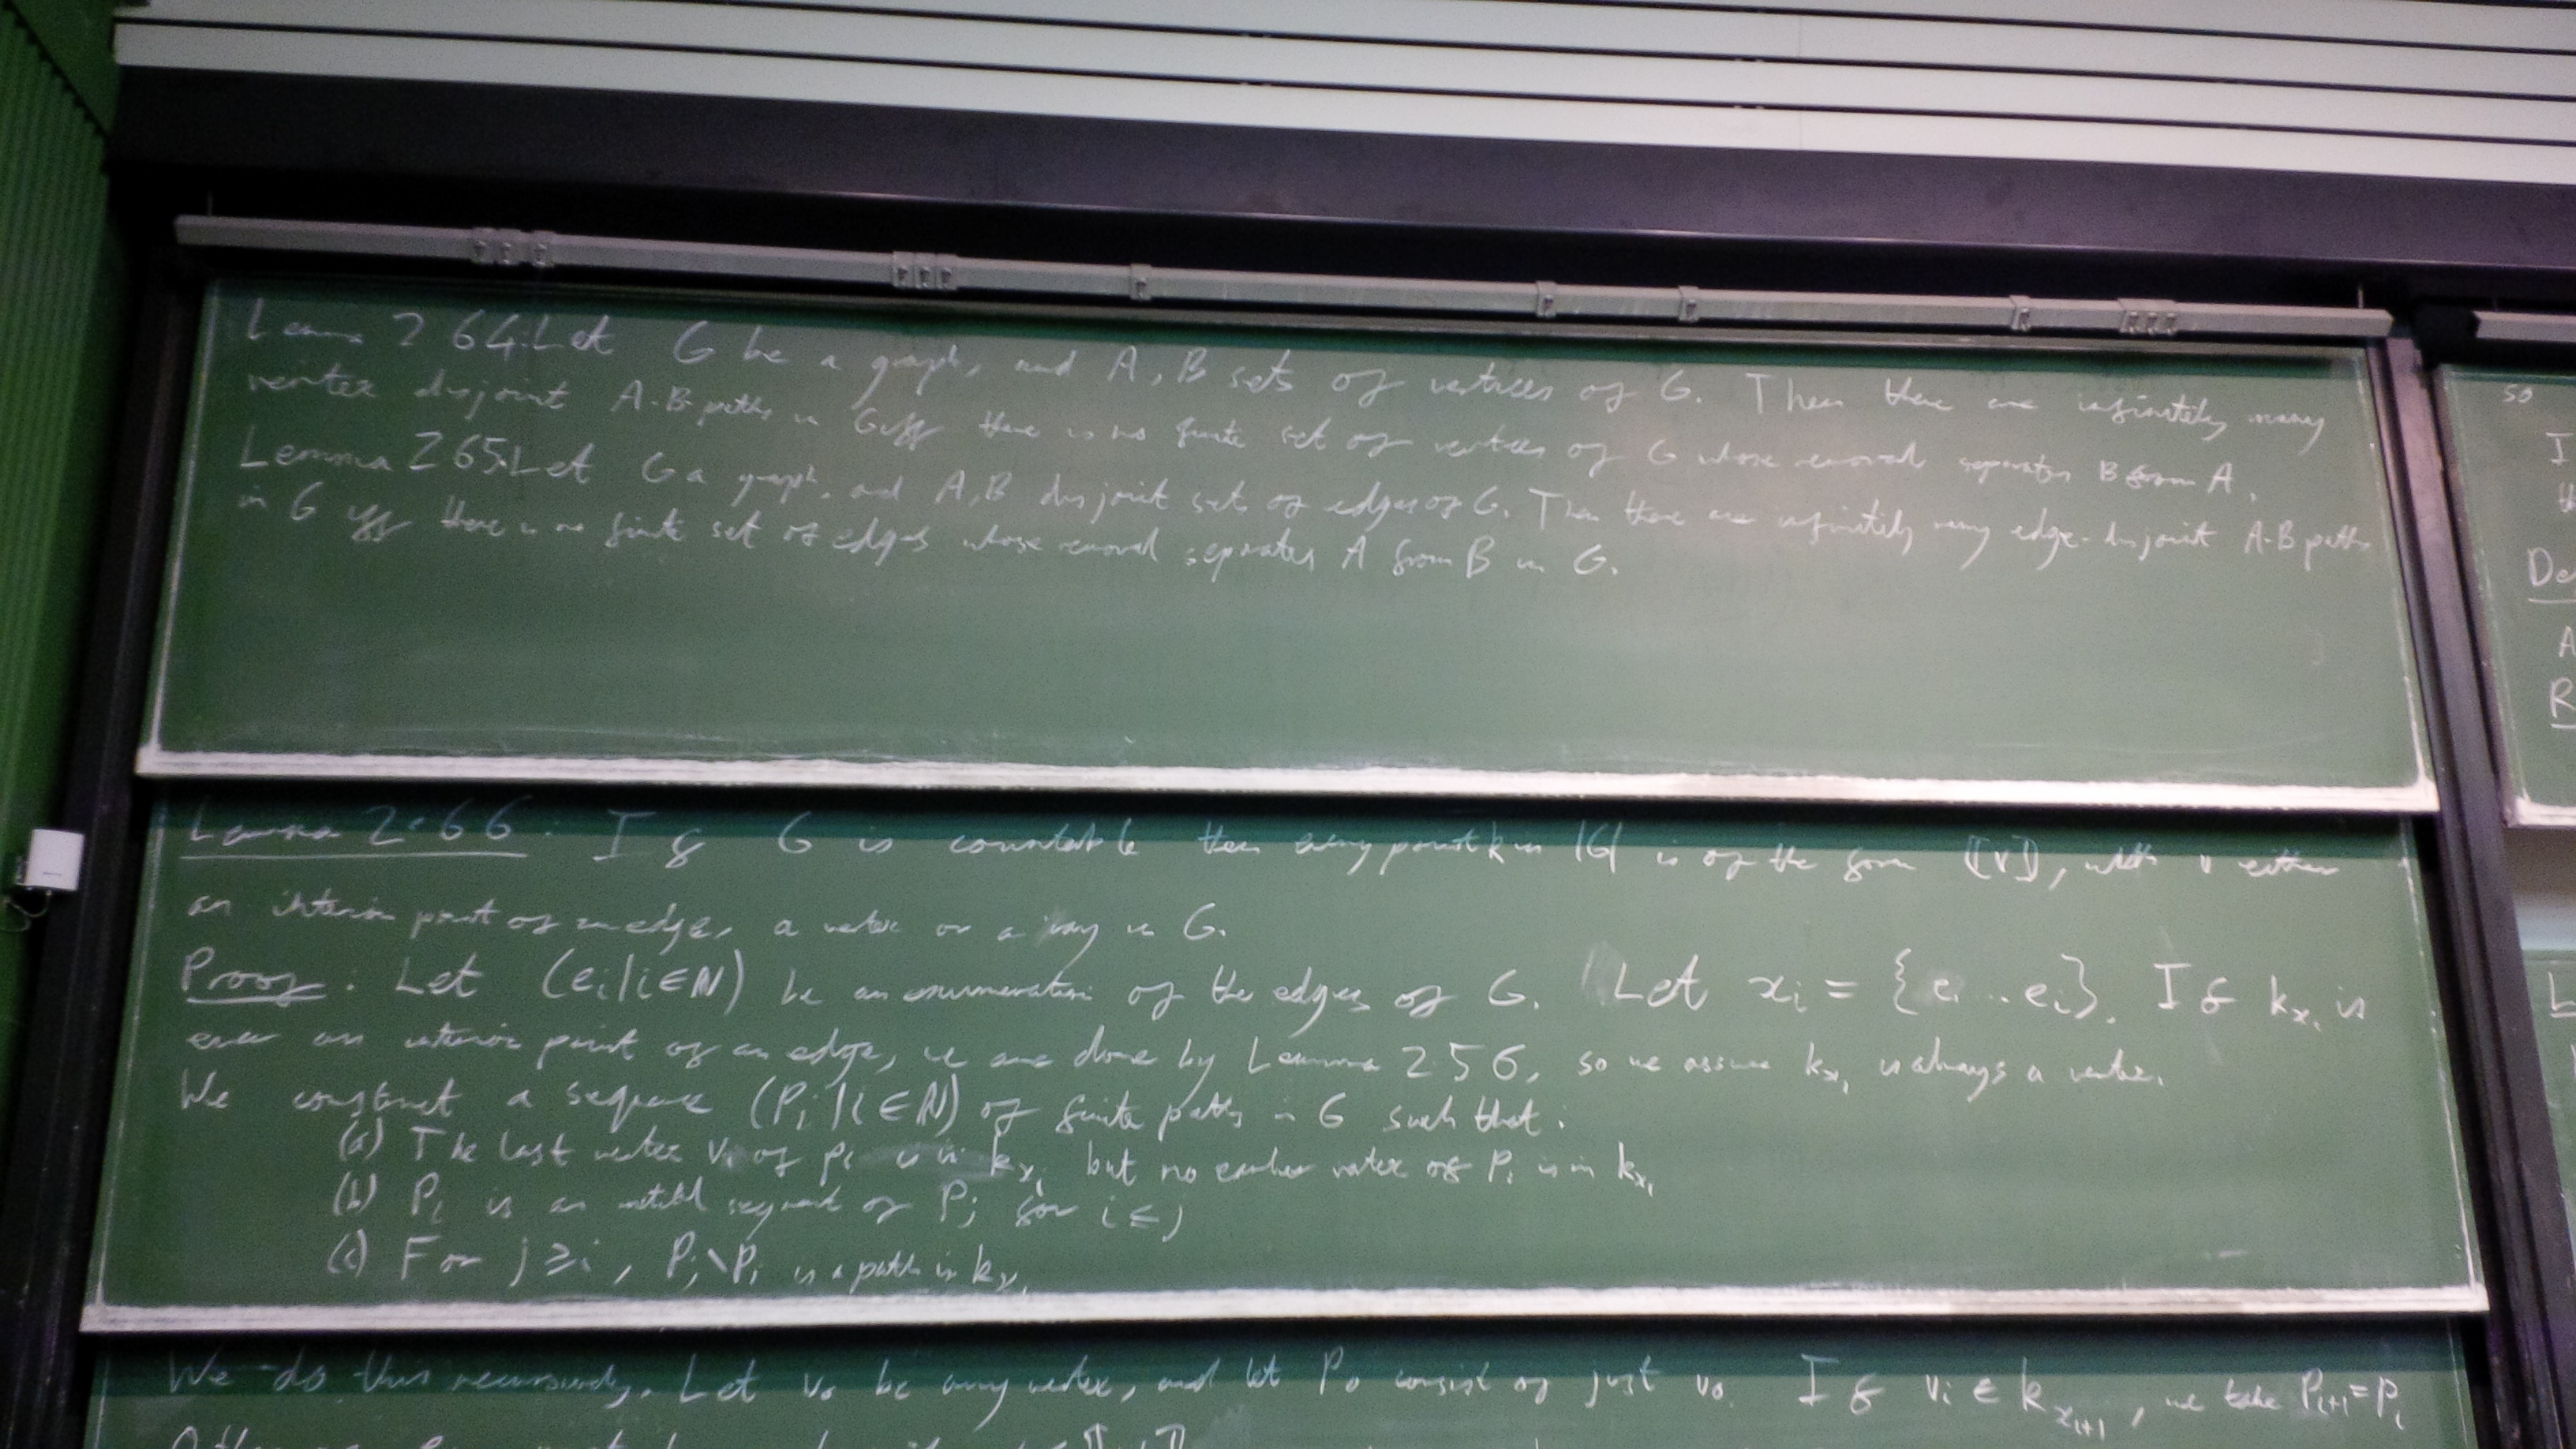 Lemma 2.64. Let G be a graph, and A, B sets of vertices of G. Then there are infinitely many
vertex disjoint A-B paths in G iff there is no finite set of vertices of G whose removal separates B from A.
Lemma 2.65. Let G a graph, and A, B disjoint sets of edges of G. Then there are infinitely many edge-disjoint A-B paths
in G iff there is no finite set of edges whose removal separates A from B in G.
Lemma 2.66. If G is countable then every point k in |G| is of the form [[v]], with v either
an interior point of an edge, a vertex or a ray in G.
Proof: Let (e_i | i ∈ N) be an enumeration of the edges of G. Let x_i = {e_1 ... e_i}. If k_{x_i} is
ever an interior point of an edge, we are done by Lemma 2.56, so we assume k_{x_i} is always a vertex.
We construct a sequence (P_i | i ∈ N) of finite paths in G such that:
(a) The last vertex v_i of P_i is in k_{x_i} but no earlier vertex of P_i is in k_{x_i}
(b) P_i is an initial segment of P_j for i ≤ j
(c) For j ≥ i, P_j \ P_i is a path in k_{x_i}
We do this recursively. Let v_0 be any vertex, and let P_0 consist of just v_0. If v_i ∈ k_{x_{i+1}}, we take P_{i+1} = P_i
so
I
De
A
R
L